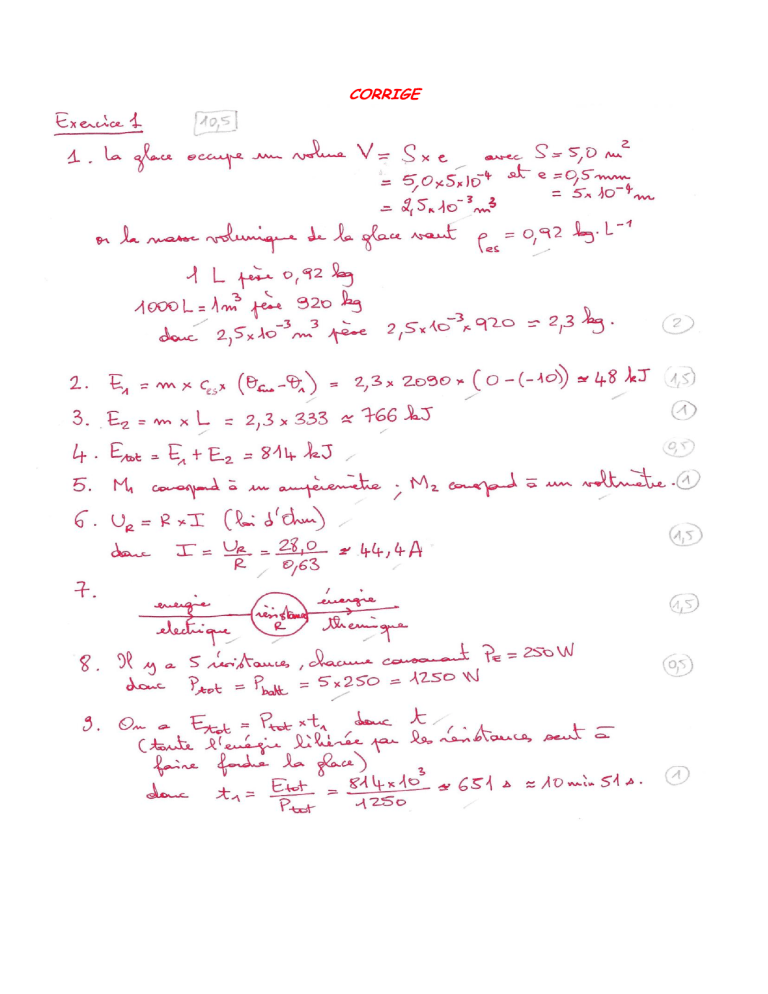 CORRIGE
Exercice 1 10,5
1. La glace occupe un volume V = S x e avec S = 5,0 m²
= 5,0x5x10⁻⁴ et e = 0,5 mm
= 5x10⁻⁴ m
= 2,5x10⁻³ m³
or la masse volumique de la glace vaut ρes = 0,92 kg.L⁻¹
1 L pèse 0,92 kg
1000 L = 1 m³ pèse 920 kg
donc 2,5x10⁻³ m³ pèse 2,5x10⁻³x920 = 2,3 kg. 2
2. E₁ = m x ces x (θfus - θ₁) = 2,3 x 2090 x (0-(-10)) ≈ 48 kJ 1,5
3. E₂ = m x L = 2,3 x 333 ≈ 766 kJ 1
4. Etot = E₁ + E₂ = 814 kJ 0,5
5. M₁ correspond à un ampèremètre ; M₂ correspond à un voltmètre. 1
6. UR = R x I (loi d'Ohm)
donc I = UR/R = 28,0/0,63 ≈ 44,4 A 1,5
7.
énergie électrique résistance R énergie thermique 1,5
8. Il y a 5 résistances, chacune consommant PE = 250 W
donc Ptot = Pbatt = 5x250 = 1250 W 0,5
9. On a Etot = Ptot x t₁ donc t
(toute l'énergie libérée par les résistances sert à
faire fondre la glace)
donc t₁ = Etot/Ptot = 814x10³/1250 ≈ 651 s ≈ 10 min 51 s. 1